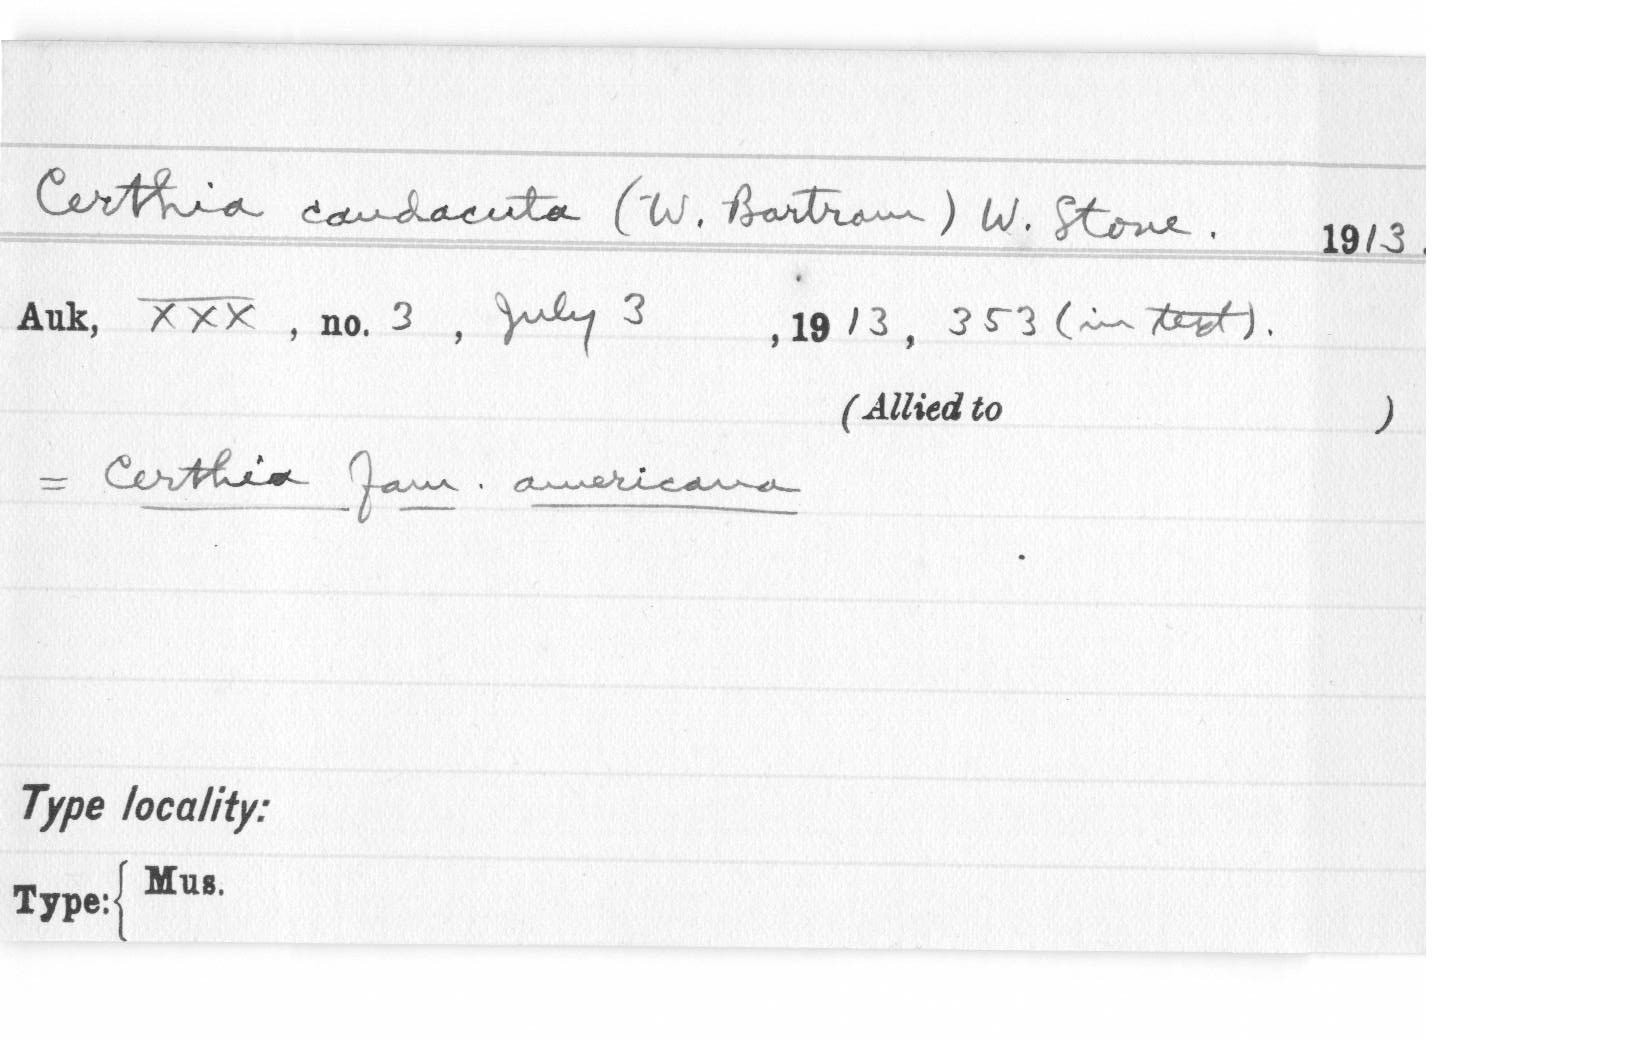 Certhia caudacuta (W. Bartram) W. Stone. 1913.
Auk, XXX, no. 3, July 3, 1913, 353 (in text).
(Allied to )
= Certhia fam. americana
Type locality:
Type: { Mus.